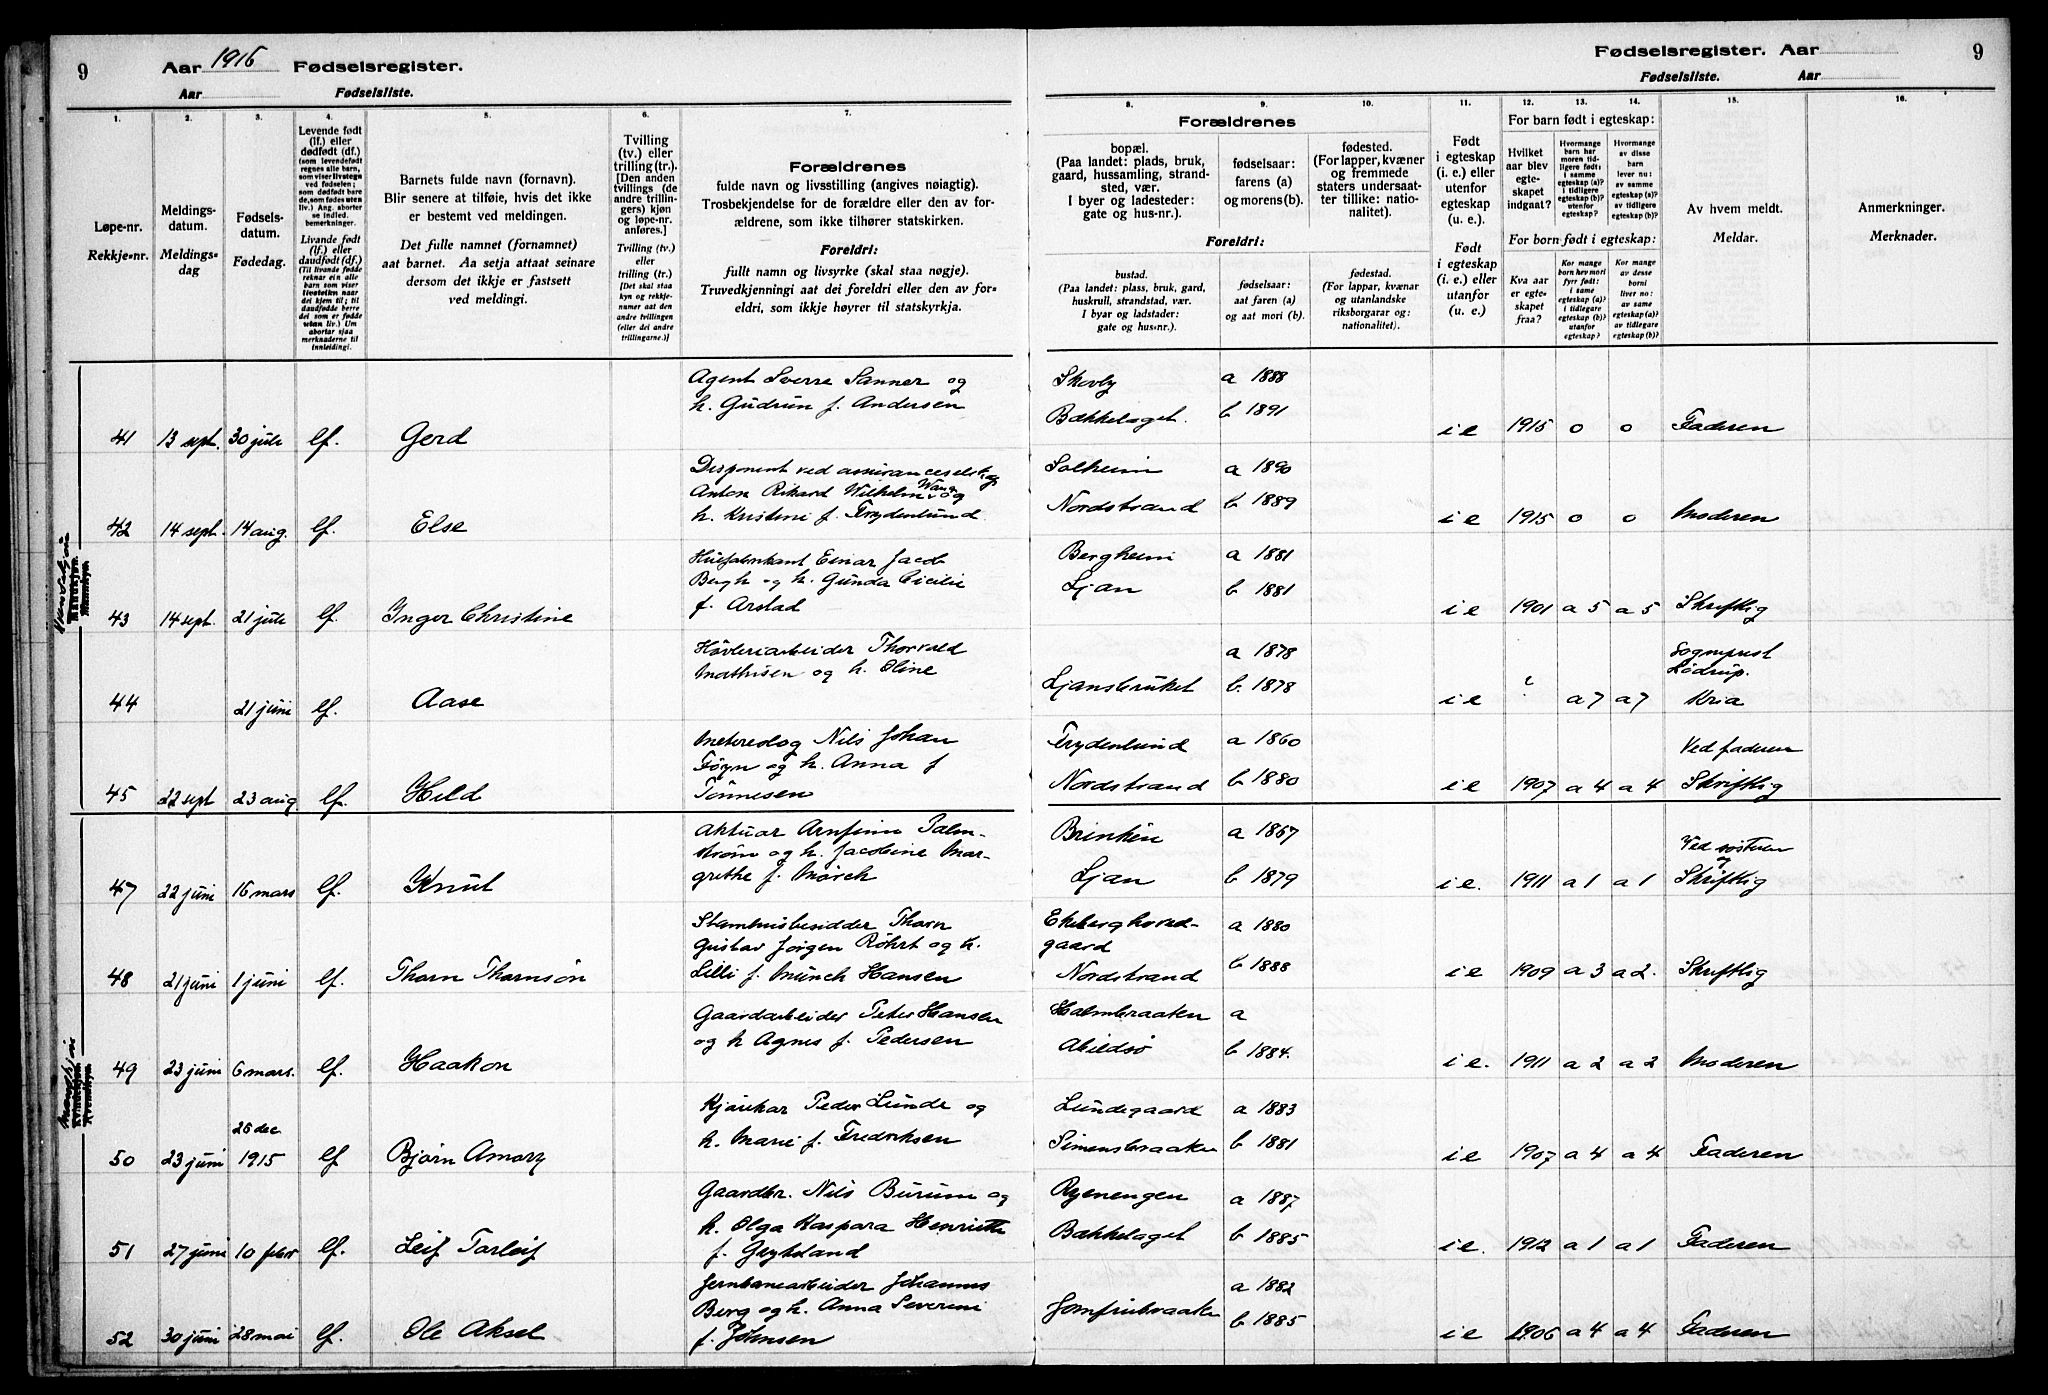 9
Aar 1916 Fødselsregister.
Aar Fødselsliste.
Fødselsregister. Aar
9
Fødselsliste. Aar
1.
Løpe-nr.
Rekkje-nr.
2.
Meldings-
datum.
Meldings-
dag
3.
Fødsels-
datum.
Fødedag.
4.
Levende født
(lf.) eller
dødfødt (df.)
(som levendefødt
regnes alle barn,
som viser livstegn
ved fødselen;
som dødfødt bare
de, som fødes uten
liv.) Ang. aborter
se indled.
bemerkninger.
Livande født
(lf.) eller
daudfødt (df.)
(Til livande fødde
reknar ein alle
barn som viser
livsteikn naar
dei kjem til; til
daudfødde berre
dei som er fødde
utan liv.) Um
abortar sjaa
merknaderne til
innleiding).
5.
Barnets fulde navn (fornavn).
Blir senere at tilføie, hvis det ikke
er bestemt ved meldingen.
Det fulle namnet (fornamnet)
aat barnet. Aa setja attaat seinare
dersom det ikkje er fastsett
ved meldingi.
6.
Tvilling
(tv.) eller
trilling (tr.).
[Den anden
tvillings (de
andre trillin-
gers) kjøn
og løpe-nr.
anføres.]
Tvilling (tv.)
eller
trilling (tr.)
[Det skal staa
kyn og rekkje-
numer aat den
andre tvillingen
(eller dei andre
trillingarne.)]
7.
Forældrenes
fulde navn og livsstilling (angives nøiagtig).
Trosbekjendelse for de forældre eller den av for-
ældrene, som ikke tilhører statskirken.
Foreldri:
fullt namn og livsyrke (skal staa nøgje).
Truvedkjenningi aat dei foreldri eller den av for-
eldri, som ikkje høyrer til statskyrkja.
Forældrenes
8.
bopæl.
(Paa landet: plads, bruk,
gaard, hussamling, strand-
sted, vær.
I byer og ladesteder:
gate og hus-nr.).
9.
fødselsaar:
farens (a)
og morens (b).
10.
fødested.
(For lapper, kvæner
og fremmede
staters undersaat-
ter tillike: natio-
nalitet).
Foreldri:
bustad.
(Paa landet: plass, bruk, gard,
huskrull, strandstad, vær.
I byar og ladstader:
gate og hus-nr.).
fødselsaar:
aat faren (a)
og aat mori (b).
fødestad.
(For lappar, kvænar
og utanlandske
riksborgarar og:
nationalitet).
11.
Født
i egteskap
(i. e.) eller
utenfor
egteskap
(u. e.).
Født
i egteskap
(i. e.) eller
utanfor
(u. e.).
12. 13. 14.
For barn født i egteskap:
Hvilket
aar blev
egte-
skapet
indgaat?
Hvormange
barn har
moren tid-
ligere født:
i samme
egteskap (a)?
i tidligere
egteskap (b)?
utenfor
egteskap?
Hvormange
av disse
barn
lever nu:
av samme
egteskap (a)?
av tidligere
egteskap (b)?
For born født i egteskap:
Kva aar
er egte-
skapet
fraa?
Kor mange
born hev mori
fyrr født:
i same
egteskap (a)?
i tidlegare
egteskap (b)?
utanfor
egteskap?
Kor mange
av desse
borni
liver no:
av same
egteskap (a)?
av tidlegare
egteskap (b)?
15.
Av hvem meldt.
Meldar.
16.
Anmerkninger.
Merknader.
Kvindekjøn
Mandkjøn.
Mannkyn.
Agent Sverre Sanner og
h. Gudrun f. Andersen
41 13 sept. 30 juli lf. Gerd
Skovly a 1888
Bækkelaget. b 1891
i e 1915 0 0 Faderen
Disponent ved assuranceselskap
Anton Rikard Wilhelm Wang og
h. Kristine f. Frydenlund
42 14 sept. 14 aug. lf. Else
Solheim a 1890
Nordstrand b 1889
i e 1915 0 0 Moderen
Einar Jacob
Bergh og h. Gunda Cicilie
f. Arstad
43 14 sept. 21 juli lf. Inger Christine
Bergheim a 1881
Ljan b 1881
i e 1901 a 5 a 5 Skriftlig
Høvleriarbeider Thorvald
Mathisen og h. Oline
44 21 juni lf. Aase
a 1878
Ljansbruket b. 1878
i e ? a 7 a 7
Sogneprest
Lødrup.
Kria
Metereolog Nils Johan
Føyn og h. Anna f
Tønnesen
45 22 sept 23 aug. lf. Hild
Frydenlund a 1860
Nordstrand b 1880
i e 1907 a 4 a 4
Ved faderen
Skriftlig
Mandkjøn
Kvindekjøn.
Kvendkyn.
Aktuar Arnfinn Palm-
strøm og h. Jacobine Mar-
grethe f. Mørch
47 22 juni 16 mars lf. Knut
Brinken a 1867
Ljan b 1879
i e. 1911 a 1 a 1
Ved søsteren
og
Skriftlig
Stamhusbesidder Thorn
Gustav Jørgen Røhrt og h.
Lilli f. Münch Hansen
48 21 juni 1 juni lf. Thorn Thornsøn
Ekeberg hoved-
gaard
Nordstrand
a 1880
b 1888
i e 1909 a 3 a 2. Skriftlig
Gaardarbeider Peter Hansen
og h Agnes f. Pedersen
49 23 juni 6 mars. lf. Haakon
Holmbraaten a
Abildsø b 1884.
i e. 1911 a 2 a 2 Moderen
Kjørekar Peder Lunde og
h. Marie f. Fredriksen
26 dec.
50 23 juni 1915 lf Bjørn Amory
Lundegaard a 1883
Simensbraaten b 1881
i e 1907 a 4 a 4 Faderen
Gaardbr. Nils Burum og
h. Olga Kaspara Henriette
f. Gryteland
51 27 juni 10 febr lf. Leif Torleif
Ryenengen a 1887
Bækkelaget b 1885
i e. 1912 a 1 a 1 Faderen
Jernbanearbeider Johannes
Berg og h. Anna Severine
f. Johnsen
52 30 juni 28 mai lf. Ole Aksel
a 1882
Jomfrubraaten b 1885
i e 1906 a 4 a 4 Faderen